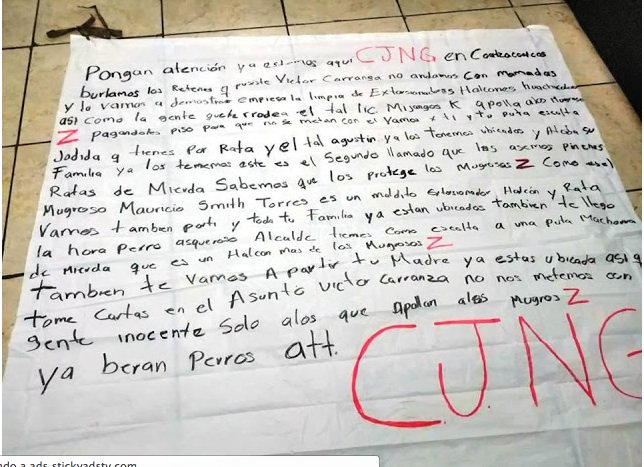 Pongan atención ya estamos aqui CJNG en Coatzacoalcos
burlamos los Retenes q puso Victor Carranza no andamos con mamadas
y lo vamos a demostrar empieza la limpia de Extorsionadores Halcones
asi como la gente que rodea el tal lic K apolla a los
Z pagandoles piso para que no se metan con el Vamos x ti y tu puta esculta
Jodida q tienes por Rata y el tal agustin ya los tenemos ubicados y Alcoba su
Familia ya los tenemos este es el Segundo llamado que les asemos pinches
Ratas de Mierda Sabemos que los protege los Mugrosos Z Como es el
Mugroso Mauricio Smith Torres es un maldito Extorsionador Halcón y Rata
Vamos tambien por ti y toda tu Familia ya estan ubicados tambien te llego
la hora perro asqueroso Alcalde tienes como escolta a una puta Machorra
de Mierda que es un Halcon mas de los Mugrosos Z
tambien te Vamos A partir tu Madre ya estas ubicada asi q
tome Cartas en el Asunto victor Carranza no nos metemos con
gente inocente Solo alos que Apollan alos Mugros Z
ya beran Perros att.
C.J.NG
do a ads.stickyadstv.com